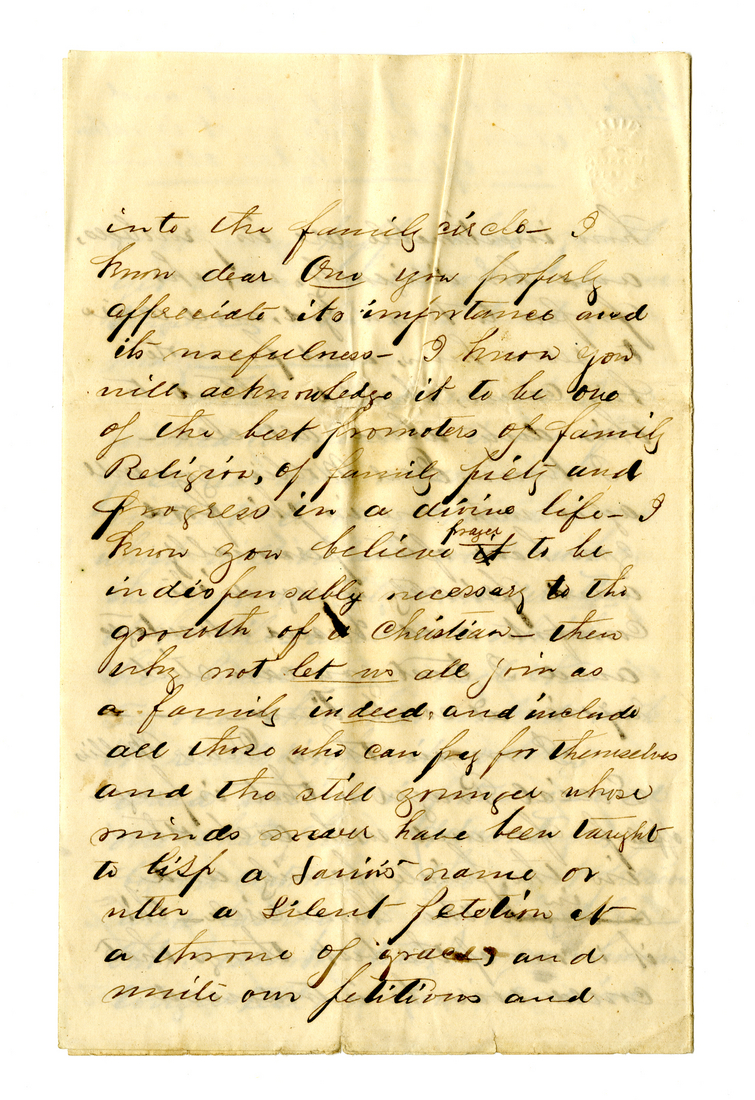 into the family circle – I
know dear One you properly
appreciate its importance and
its usefulness – I know you
will acknowledge it to be one
of the best promoters of family
Religion, of family piety and
progress in a divine life – I
know you believe prayer to be
indispensably necessary to the
growth of a Christian – then
why not let us all join as
a family indeed, and include
all those who can pray for themselves
and the still younger whose
minds never have been taught
to lisp a Savior's name or
utter a Silent petition at
a throne of grace, and
unite our petitions and